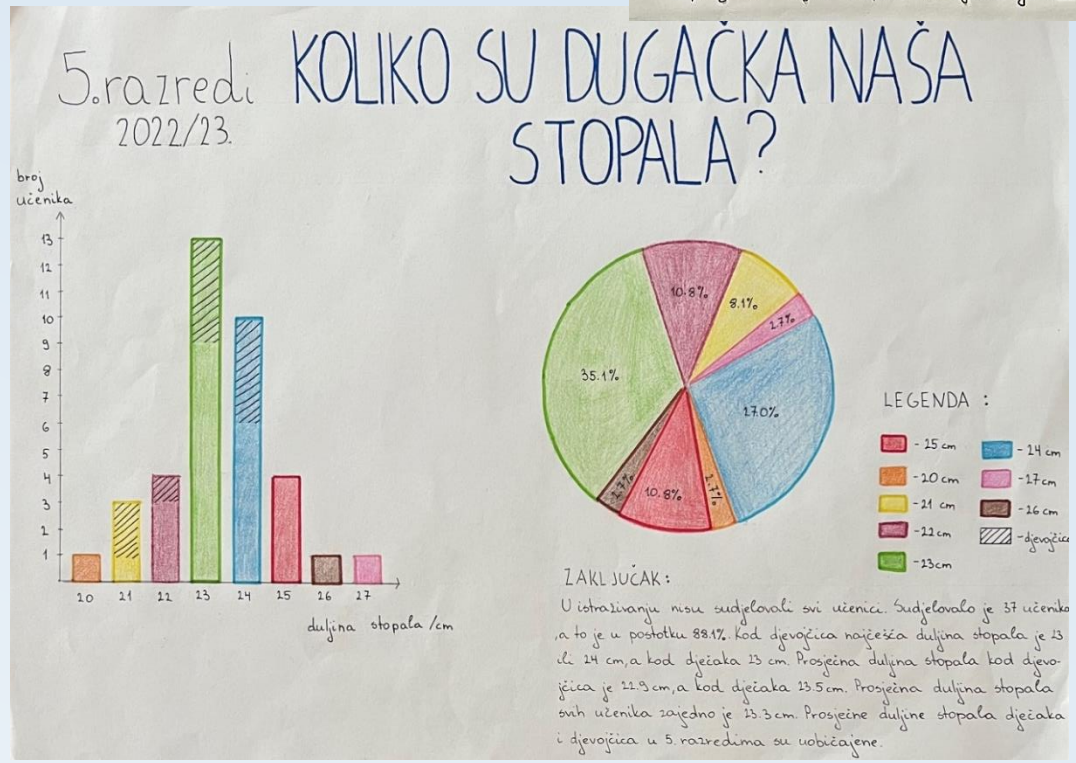 5. razredi
2022/23.
KOLIKO SU DUGAČKA NAŠA
STOPALA?
broj
učenika
13
12
11
10
9
8
7
6
5
4
3
2
1
20 21 22 23 24 25 26 27
duljina stopala /cm
10.8%
8.1%
2.7%
27.0%
2.7%
10.8%
2.7%
35.1%
LEGENDA :
- 25 cm
- 20 cm
- 21 cm
- 22 cm
- 23 cm
- 24 cm
- 27 cm
- 26 cm
- djevojčice
ZAKLJUČAK:
U istraživanju nisu sudjelovali svi učenici. Sudjelovalo je 37 učenika
, a to je u postotku 88.1%. Kod djevojčica najčešća duljina stopala je 23
ili 24 cm, a kod dječaka 23 cm. Prosječna duljina stopala kod djevo-
jčica je 22.9 cm, a kod dječaka 23.5 cm. Prosječna duljina stopala
svih učenika zajedno je 23.3 cm. Prosječne duljine stopala dječaka
i djevojčica u 5. razredima su uobičajene.